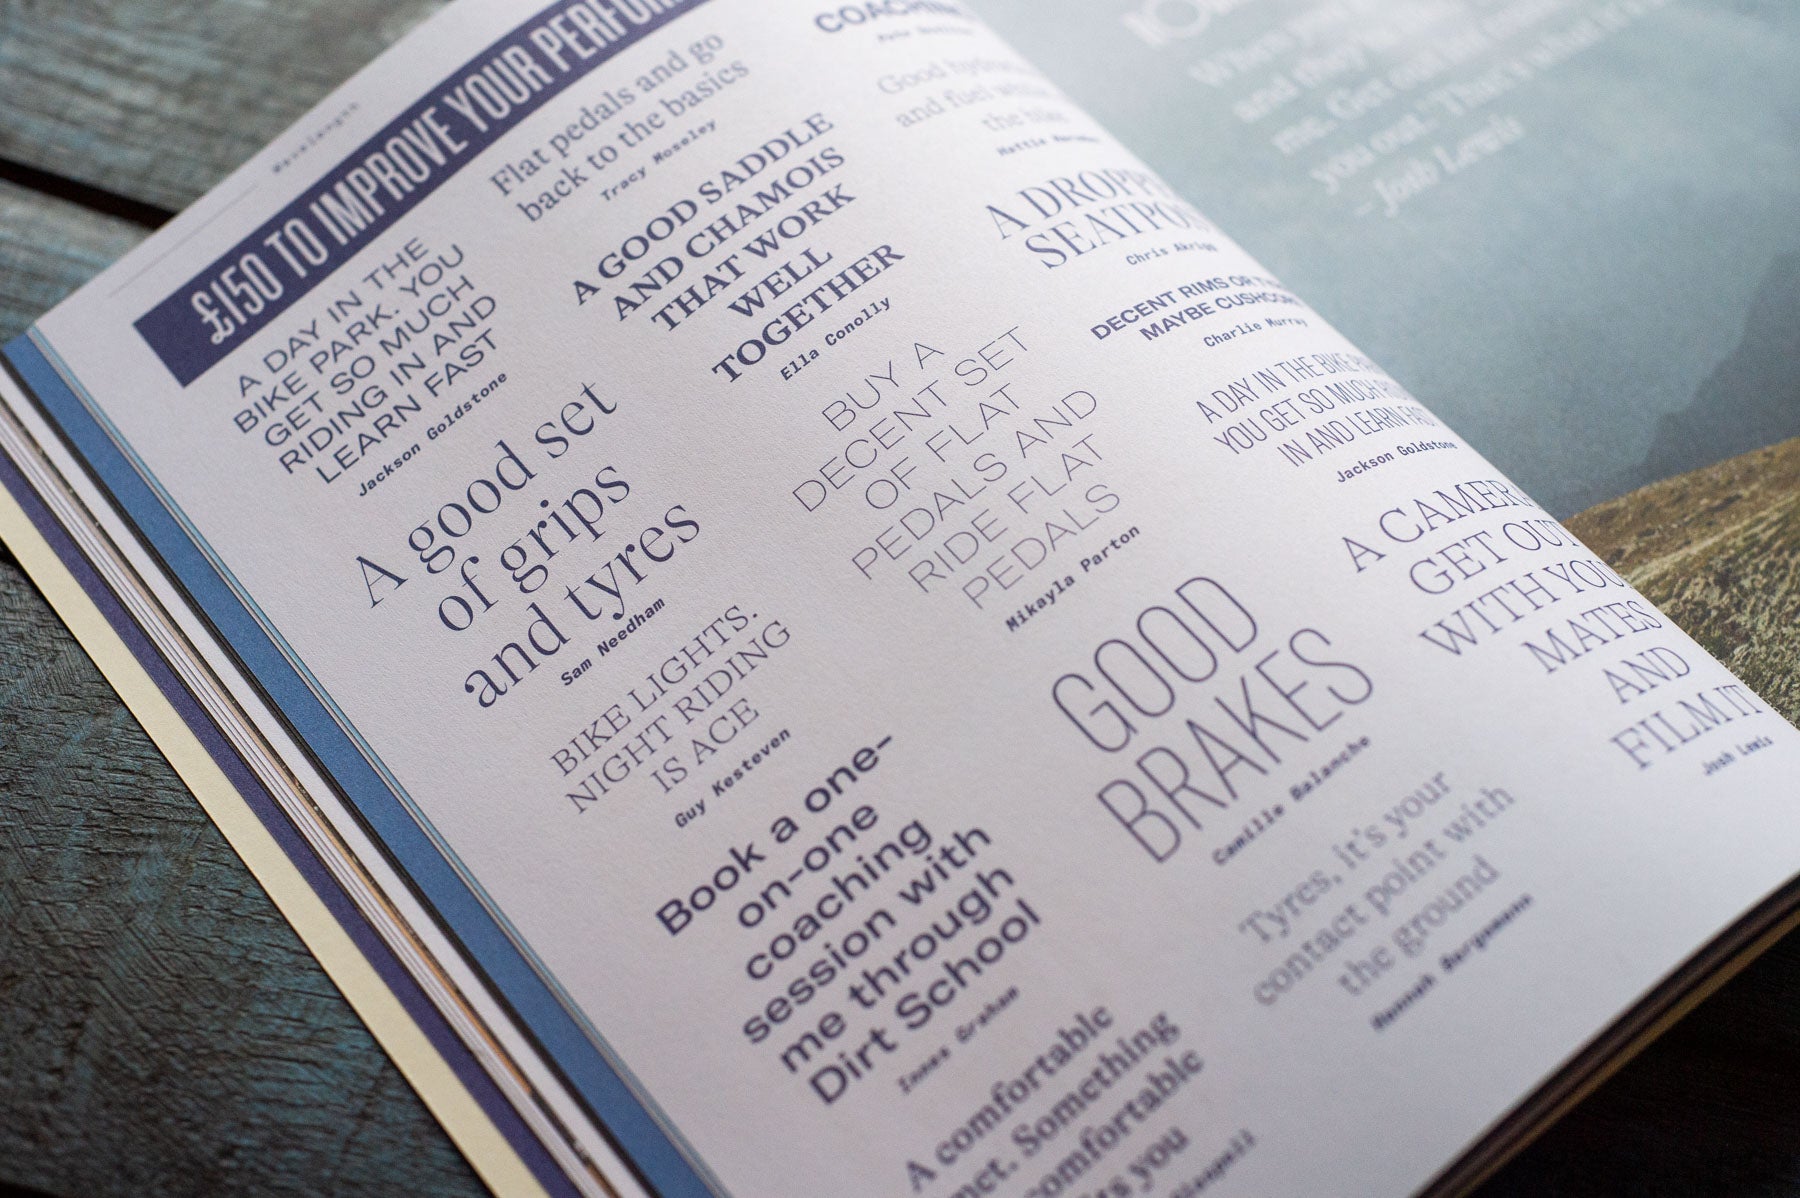 Wavelength
£150 TO IMPROVE YOUR
A DAY IN THE
BIKE PARK. YOU
GET SO MUCH
RIDING IN AND
LEARN FAST
Jackson Goldstone
A good set
of grips
and tyres
Sam Needham
BIKE LIGHTS.
NIGHT RIDING
IS ACE
Guy Kesteven
Book a one-
on-one
coaching
session with
me through
Dirt School
Innes Graham
A comfortable
Something
comfortable
you
Flat pedals and go
back to the basics
Tracy Moseley
A GOOD SADDLE
AND CHAMOIS
THAT WORK
WELL
TOGETHER
Ella Conolly
BUY A
DECENT SET
OF FLAT
PEDALS AND
RIDE FLAT
PEDALS
Mikayla Parton
GOOD
BRAKES
Camille Balanche
Tyres, it's your
contact point with
the ground
Hannah Bergemann
COACHING
Good
and fuel
the bike
Hattie
A
Chris Akrigg
DECENT RIMS OR
MAYBE
Charlie Murray
A DAY IN THE BIKE
YOU GET SO MUCH
IN AND LEARN FAST
Jackson Goldstone
A CAMERA
GET OUT
WITH YOUR
MATES
AND
FILM IT
Josh Lewis
When you
and they're
me. Get out
you out." That's what
– Josh Lewis